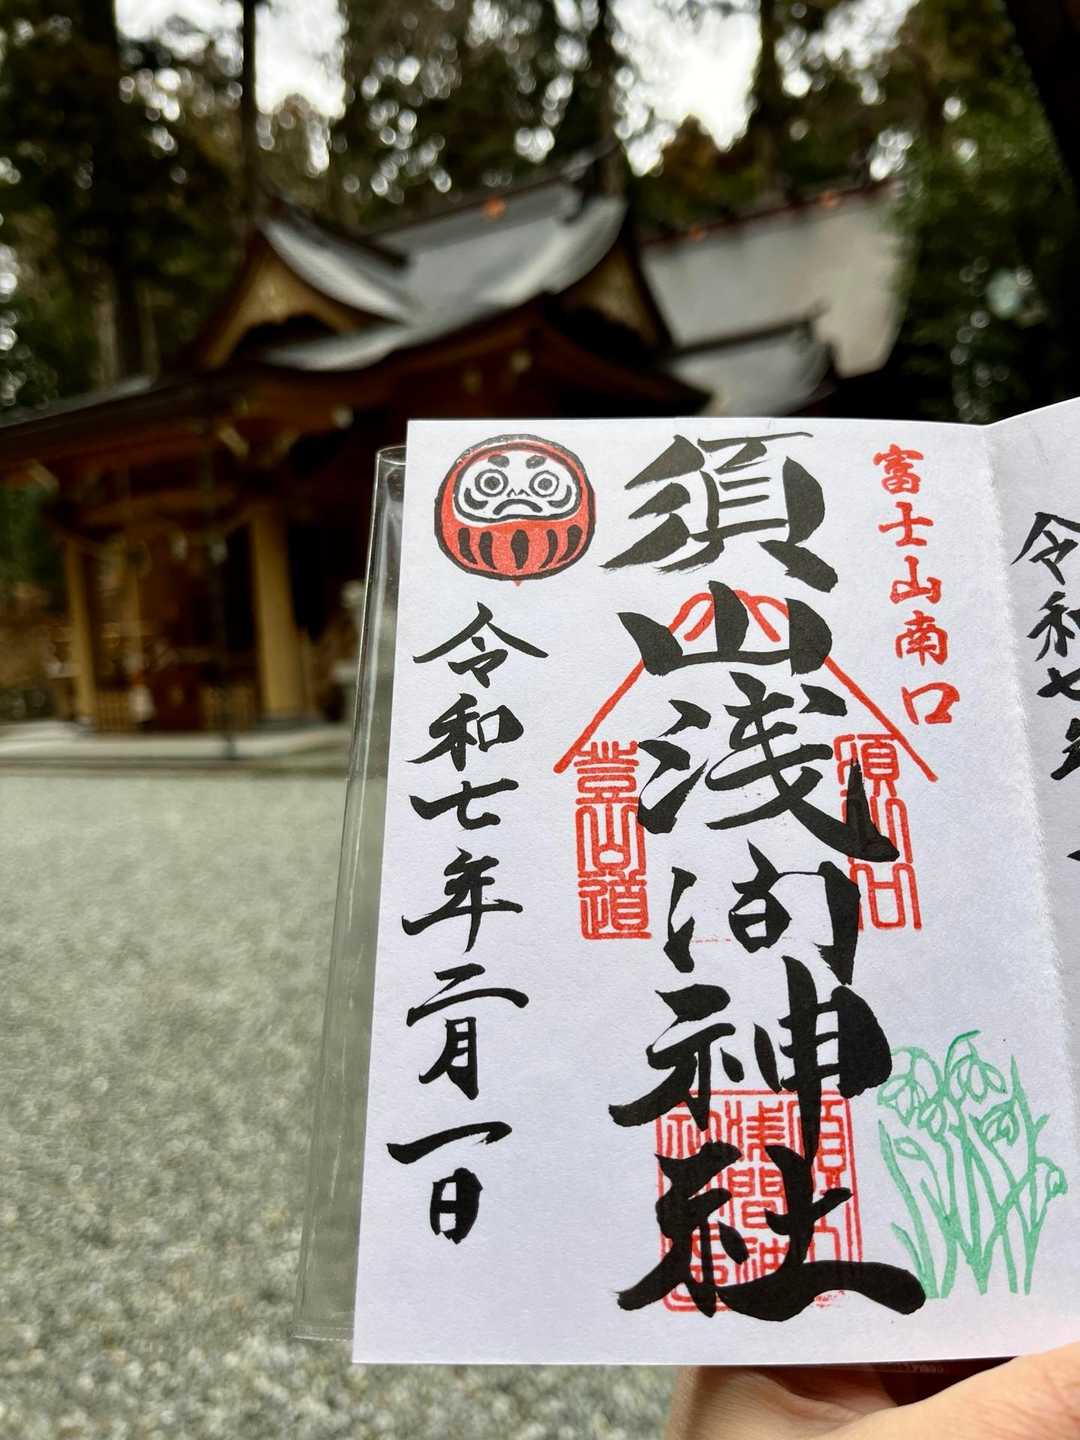 令和七年
富士山南口
須山浅间神社
須山口
登山道
令和七年二月一日